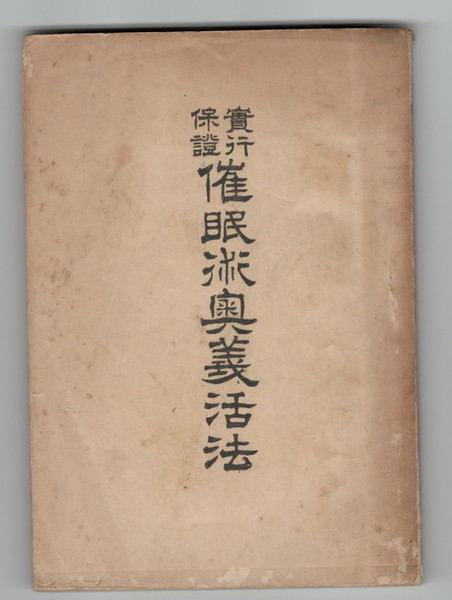 實行
保證
催眠術奧義活法